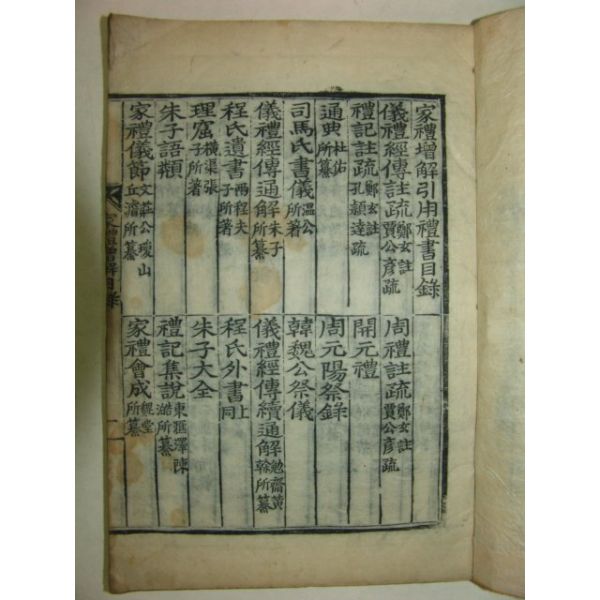 家禮增解引用禮書目錄
儀禮經傳註疏 鄭玄註 賈公彦疏 周禮註疏 鄭玄註 賈公彦疏
禮記註疏 鄭玄註 孔頴達疏 開元禮
通典 杜佑所纂 周元陽祭錄
司馬氏書儀 溫公所著 韓魏公祭儀
儀禮經傳通解 朱子所纂 儀禮經傳續通解 勉齋黃榦所纂
程氏遺書 兩程夫子所著 程氏外書 上同
理窟 橫渠張子所著 朱子大全
朱子語類 禮記集說 東滙澤陳澔所纂
家禮儀節 文莊公瓊山丘濬所纂 家禮會成 魏堂所纂
家禮增解目錄